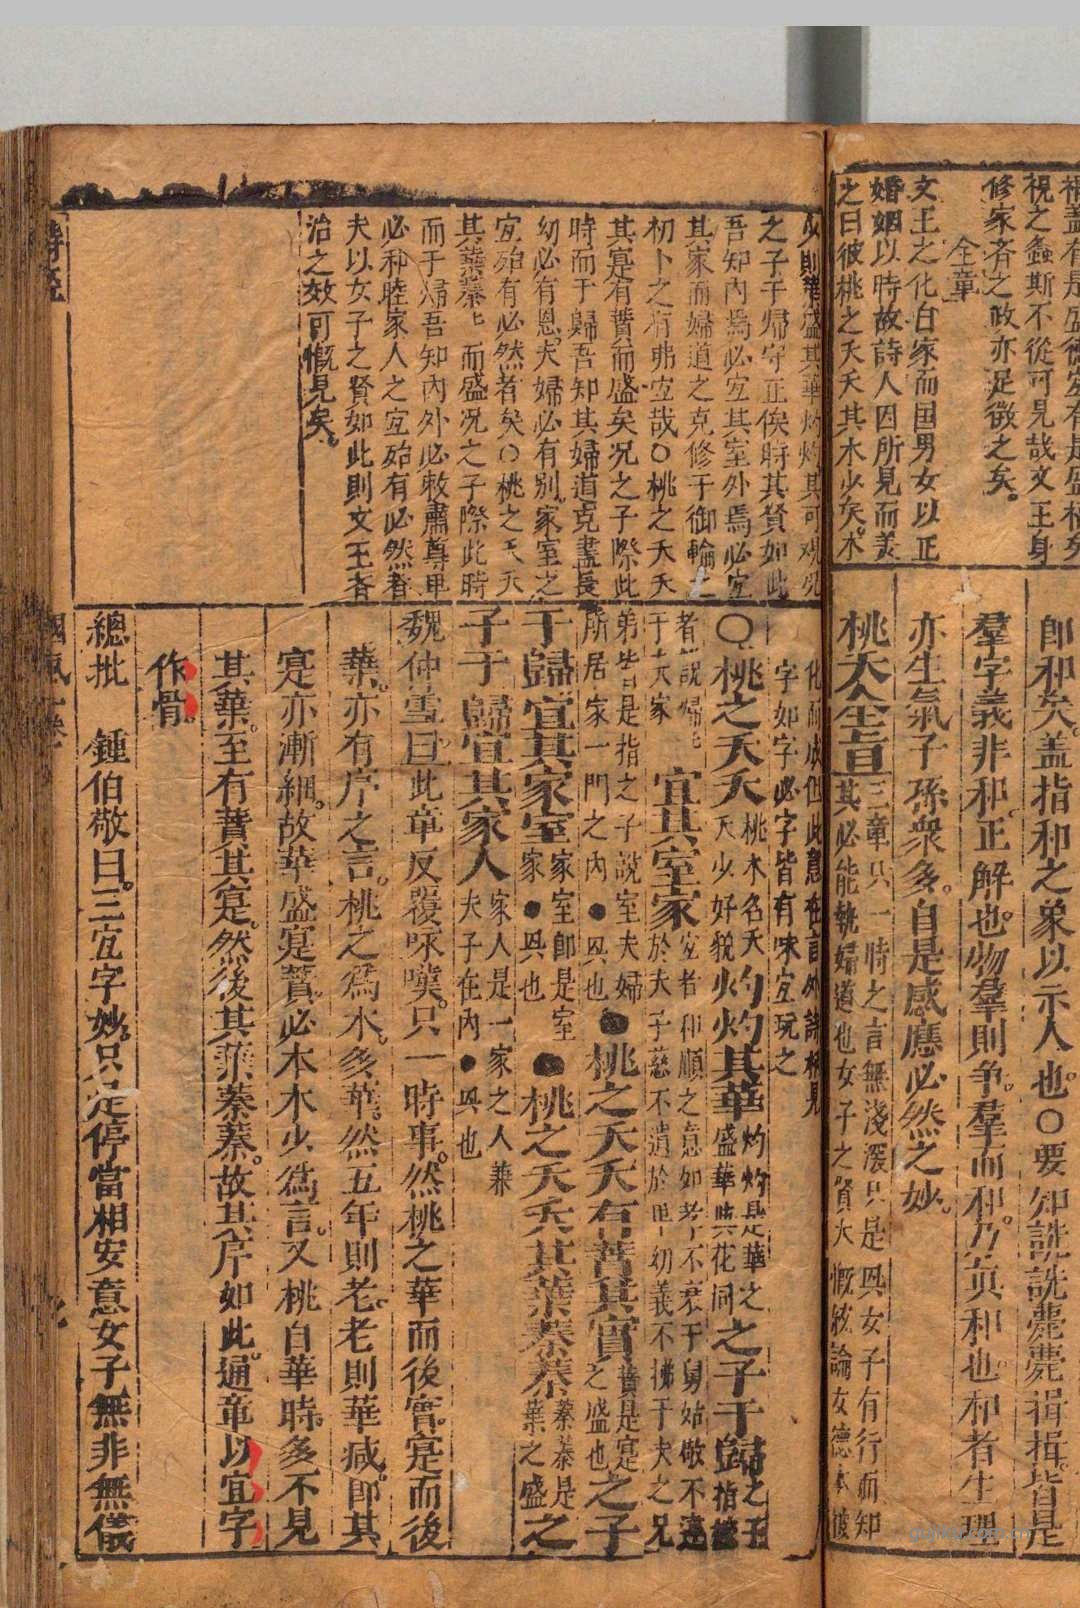 視之螽斯不從可見哉文王身
修家齐之政亦足徵之矣。
全章
文王之化自家而国男女以正
婚姻以時故詩人因所見而美
之曰彼桃之夭夭其木少矣。木
即和矣。盖指和之象以示人也。〇要知詵詵薨薨揖揖。皆是
羣字義非和。正解也。物羣則争。羣而和。乃爲真和也。和者生理
亦生氣子孫衆多。自是感應必然之妙。
桃夭全旨
三章只一時之言無淺深只是興女子有行而知
其必能執婦道也女子之賢大概被論女德本被
少則華盛其華灼灼其可观况
之子于歸守正俟時其賢如此
吾知內焉必宜其室外焉必宜
其家而婦道之克修于御輪
初卜之有弗宜哉〇桃之夭夭
其寔有蕡而盛矣况之子際此
時而于歸吾知其婦道克盡長
幼必有恩。夫婦必有别。家室之
宜殆有必然者矣〇桃之夭夭
其葉蓁蓁而盛况之子際此時
而于歸吾知內外必敕肅尊卑
必和睦家人之宜殆有必然者
夫以女子之賢如此則文王齐
治之效可慨見矣。
化而成但此意在言外詩柄見
字如字必字皆有味宜玩之
〇桃之夭夭
桃木名夭
夭少好貌
灼灼其華
灼灼是華之
盛華與花同
之子于歸
之子
指嫁
者說歸
于夫家
宜其室家
宜者和順之意如孝不衰于舅姑敬不違
於夫子慈不遺於卑幼義不拂于夫之兄
弟皆是指之子說室夫婦
所居家一門之內●興也
●桃之夭夭有蕡其實
蕡是寔
之盛也
之子
于歸宜其家室
家室即是室
家●興也
●桃之夭夭其葉蓁蓁
蓁蓁是
葉之盛
之
子于歸宜其家人
家人是一家之人兼
夫子在內●興也
魏仲雪曰此章反覆咏嘆。只一時事。然桃之華而後實。寔而後
葉。亦有序之言。桃之爲木。多華。然五年則老。老則華减。即其
寔亦漸細。故華盛寔蕡。必本木少爲言。又桃自華時。多不見
其葉。至有蕡其寔。然後其葉蓁蓁。故其序如此。通章以宜字
作骨。
總批　鍾伯敬曰。三宜字妙。只是停當相安意女子無非無儀